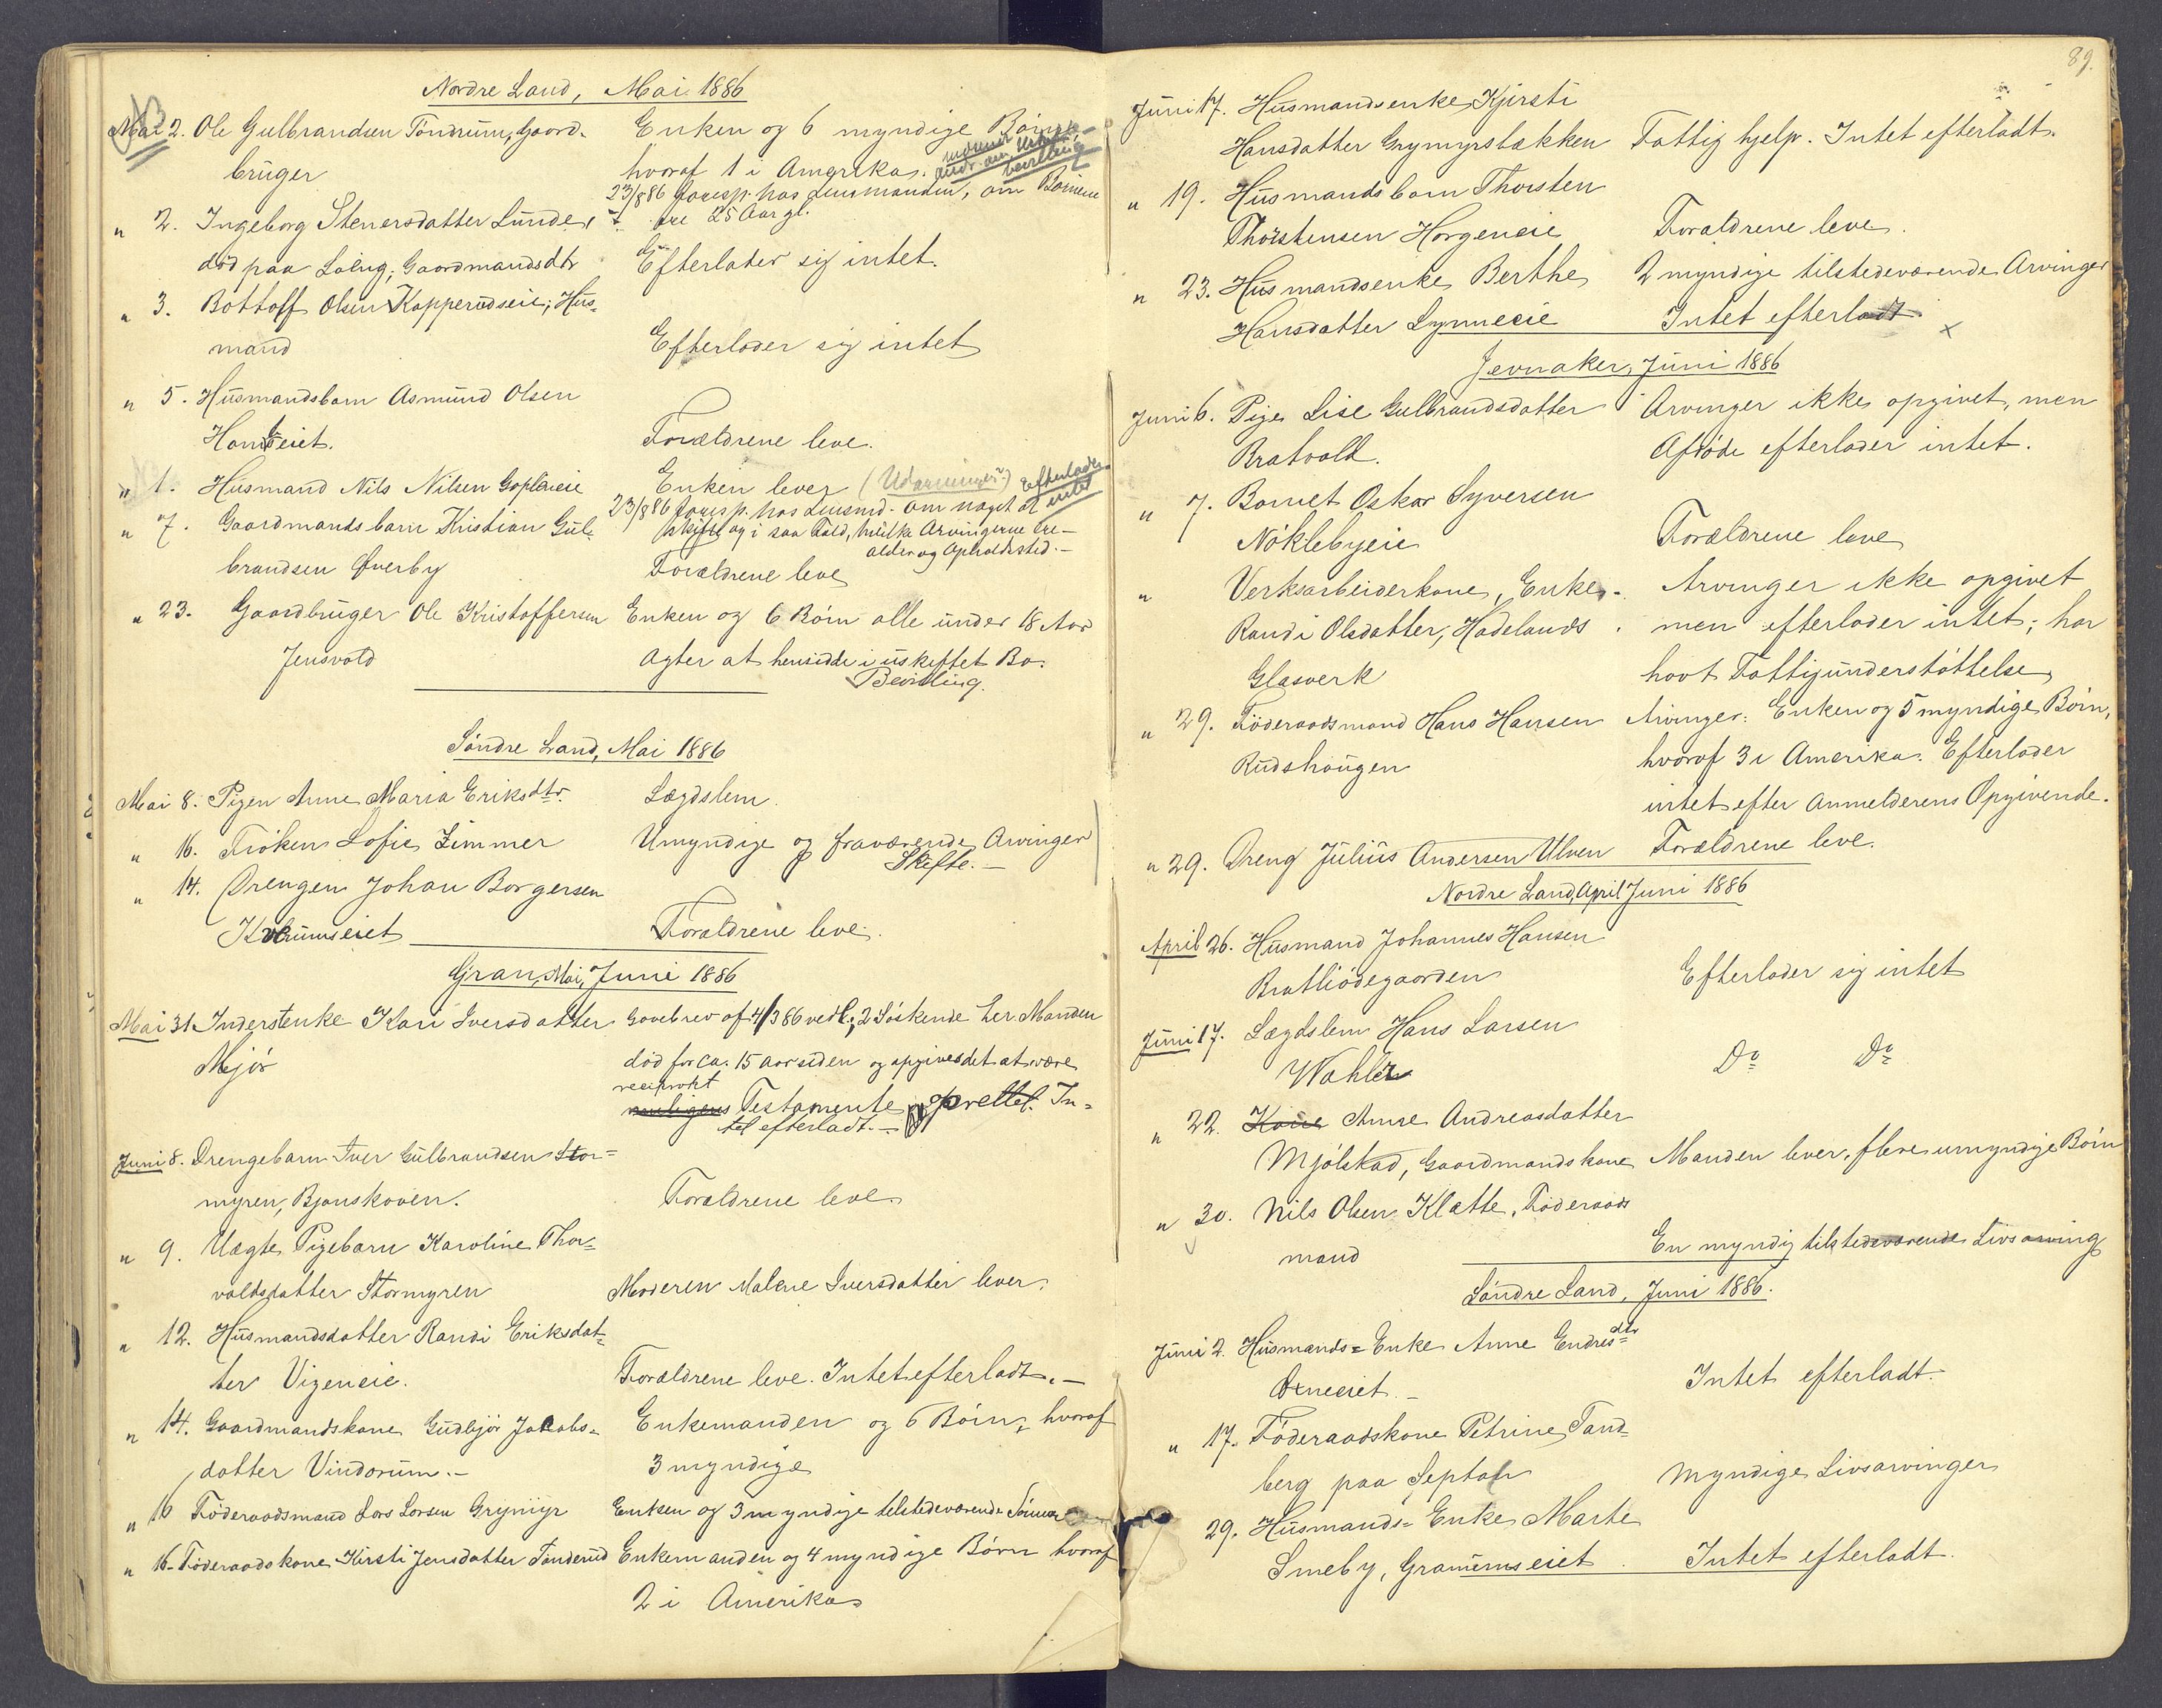 Nordre Land, Mai 1886
Mai 2. Ole Gulbrandsen Tøndrum, Gaard- Enken og 6 myndige Børn
bruger hvoraf 1 i Amerika.
23/8 86 foresp. hos Lensmanden, om Børnene
ere 25 Aar gl.
" 2. Ingeborg Stenersdatter Lunde,
død paa Lølug, Gaardmandsdtr Efterlader sig intet.
" 3. Bottolf Olsen Kopperudseie, Hus-
mand Efterlader sig intet
" 5. Husmandsbarn Asmund Olsen
Homseiet. Forældrene leve.
" 1. Husmand Nils Nilsen Goplereie Enken lever (Udarvinger?) Efterlader intet
23/8 86 foresp. hos Lensmd. om noget at
skifte og i saa Fald, hvilke Arvingerne ere -
alder og Opholdssted. -
" 7. Gaardmandsbarn Kristian Gul-
brandsen Øverby Forældrene leve
" 23. Gaardbruger Ole Kristoffersen Enken og 6 Børn alle under 18 Aar
Jensvold Agter at hensidde i uskiftet Bo.
Bevilling.
Søndre Land, Mai 1886
Mai 8. Pigen Anne Maria Eriksdtr. Lægdslem.
" 16. Frøken Sofie Zimmer Umyndige og fraværende Arvinger
Skifte. -
" 14. Drengen Johan Borgersen
Kvrumseiet Forældrene leve.
Gran, Mai, Juni 1886
Mai 31. Inderstenke Kari Iversdatter Gavebrev af 4/3 86 vedl.; 2 Søskende her Manden
Mjør død for ca. 15 aar siden og opgives det at være
reciprokt
Testamente oprettet. In-
tet efterladt. -
Juni 8. Drengebarn Iver Gulbrandsen Stor-
myren, Bjoneskoven. Forældrene leve
" 9. Uægte Pigebarn Karoline Thor-
valdsdatter Stormyren Moderen Malene Iversdatter lever.
" 12. Husmandsdatter Randi Eriksdat-
ter Vigeneie. Forældrene leve. Intet efterladt. -
" 14. Gaardmandskone Gudbjør Jacobs- Enkemanden og 6 Børn, hvoraf
datter Vindorum. - 3 myndige
" 16 Føderaadsmand Lars Larsen Grymyr Enken og 3 myndige tilstedeværende Sønner
" 16. Føderaadskone Kirsti Jensdatter Tønderud Enkemanden og 4 myndige Børn hvoraf
2 i Amerika
89.
Juni 17. Husmandsenke Kjersti
Hansdatter Grymyrsbakken Fattighjelp. Intet efterladt.
" 19. Husmandsbarn Thorsten
Thorstensen Horgeneie Forældrene leve.
" 23. Husmandsenke Berthe 2 myndige tilstedeværende Arvinger
Hansdatter Lynneeie Intet efterladt.
Jevnaker, Juni 1886
Juni 6. Pige Lise Gulbrandsdatter Arvinger ikke opgivet, men
Bratvold. Afdøde efterlader intet.
" 7. Barnet Oskar Syversen
Nøklebyeie Forældrene leve
" Verksarbeiderkone, Enke, - Arvinger ikke opgivet
Randi Olsdatter, Hadelands men efterlader intet; har
Glasverk havt Fattigunderstøttelse
" 29. Føderaadsmand Hans Hansen Arvinger: Enken og 5 myndige Børn,
Rudshaugen hvoraf 3 i Amerika. Efterlader
intet efter Anmelderens Opgivende.
" 29. Dreng Julius Andersen Ulven Forældrene leve.
Nordre Land, April Juni 1886
April 26. Husmand Johannes Hansen
Bratliødegaarden Efterlader sig intet
Juni 17. Lægdslem Hans Larsen
Wahler Do Do
" 22. Kone Anne Andreasdatter
Mjølstad, Gaardmandskone Manden lever, flere umyndige Børn
" 30. Nils Olsen Klætte, Føderaads
mand En myndig tilstedeværende Livsarving
Søndre Land, Juni 1886.
Juni 2. Husmands-Enke Anne Endresdtr
Øxneeiet. - Intet efterladt.
" 17. Føderaadskone Petrine Sand-
berg paa Septon Myndige Livsarvinger
29. Husmands-Enke Marte
Smeby, Granumseiet Intet efterladt.